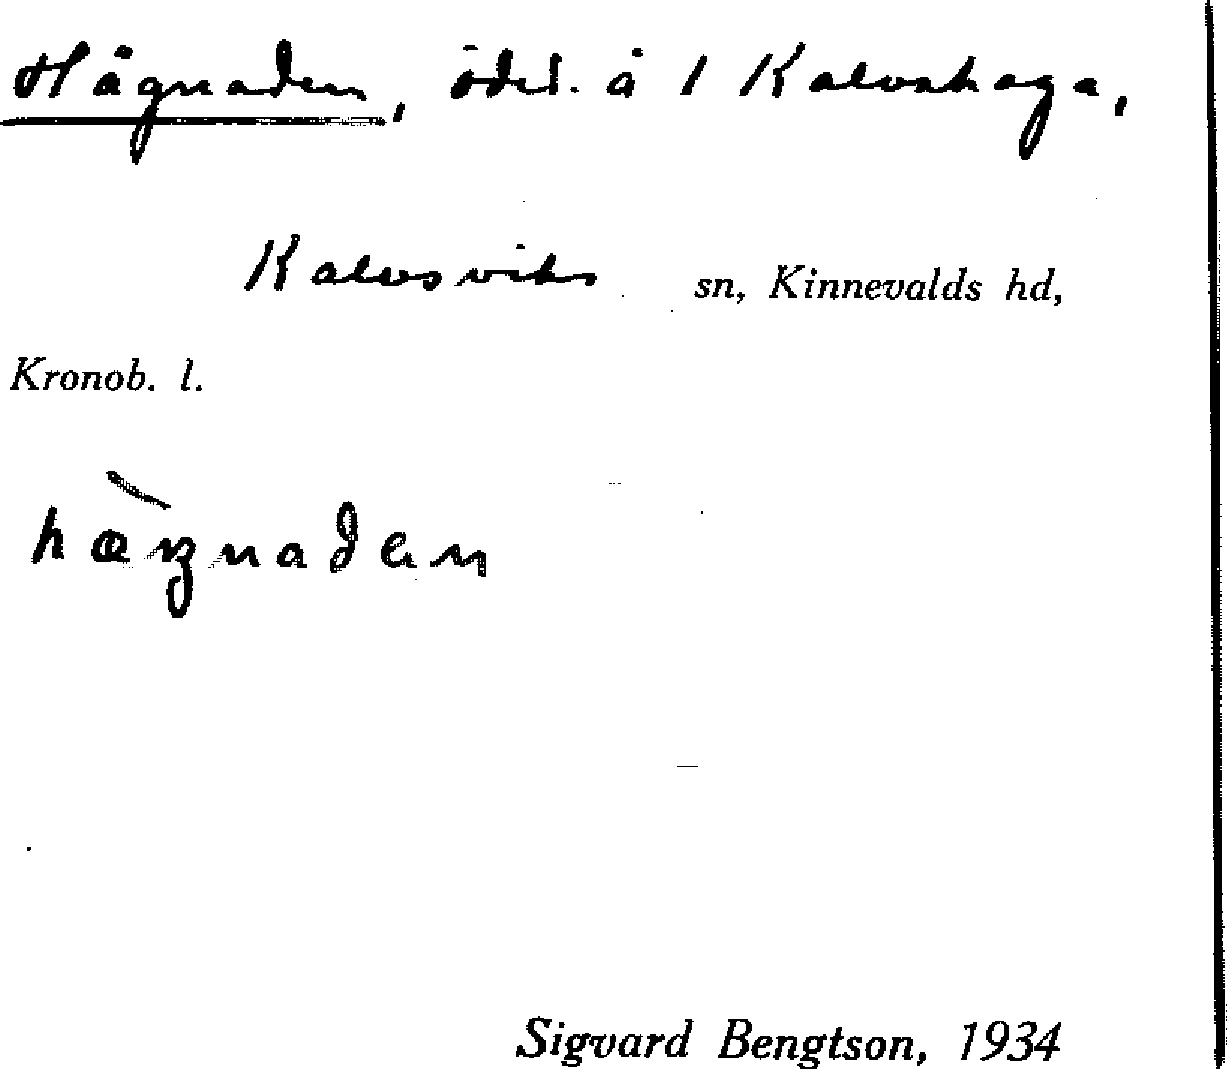 Hägnaden, ödet. å 1 Kalvshaga,
Kalvsviks sn, Kinnevalds hd,
Kronob. l.
hæ̀ŋnaden
Sigvard Bengtson, 1934